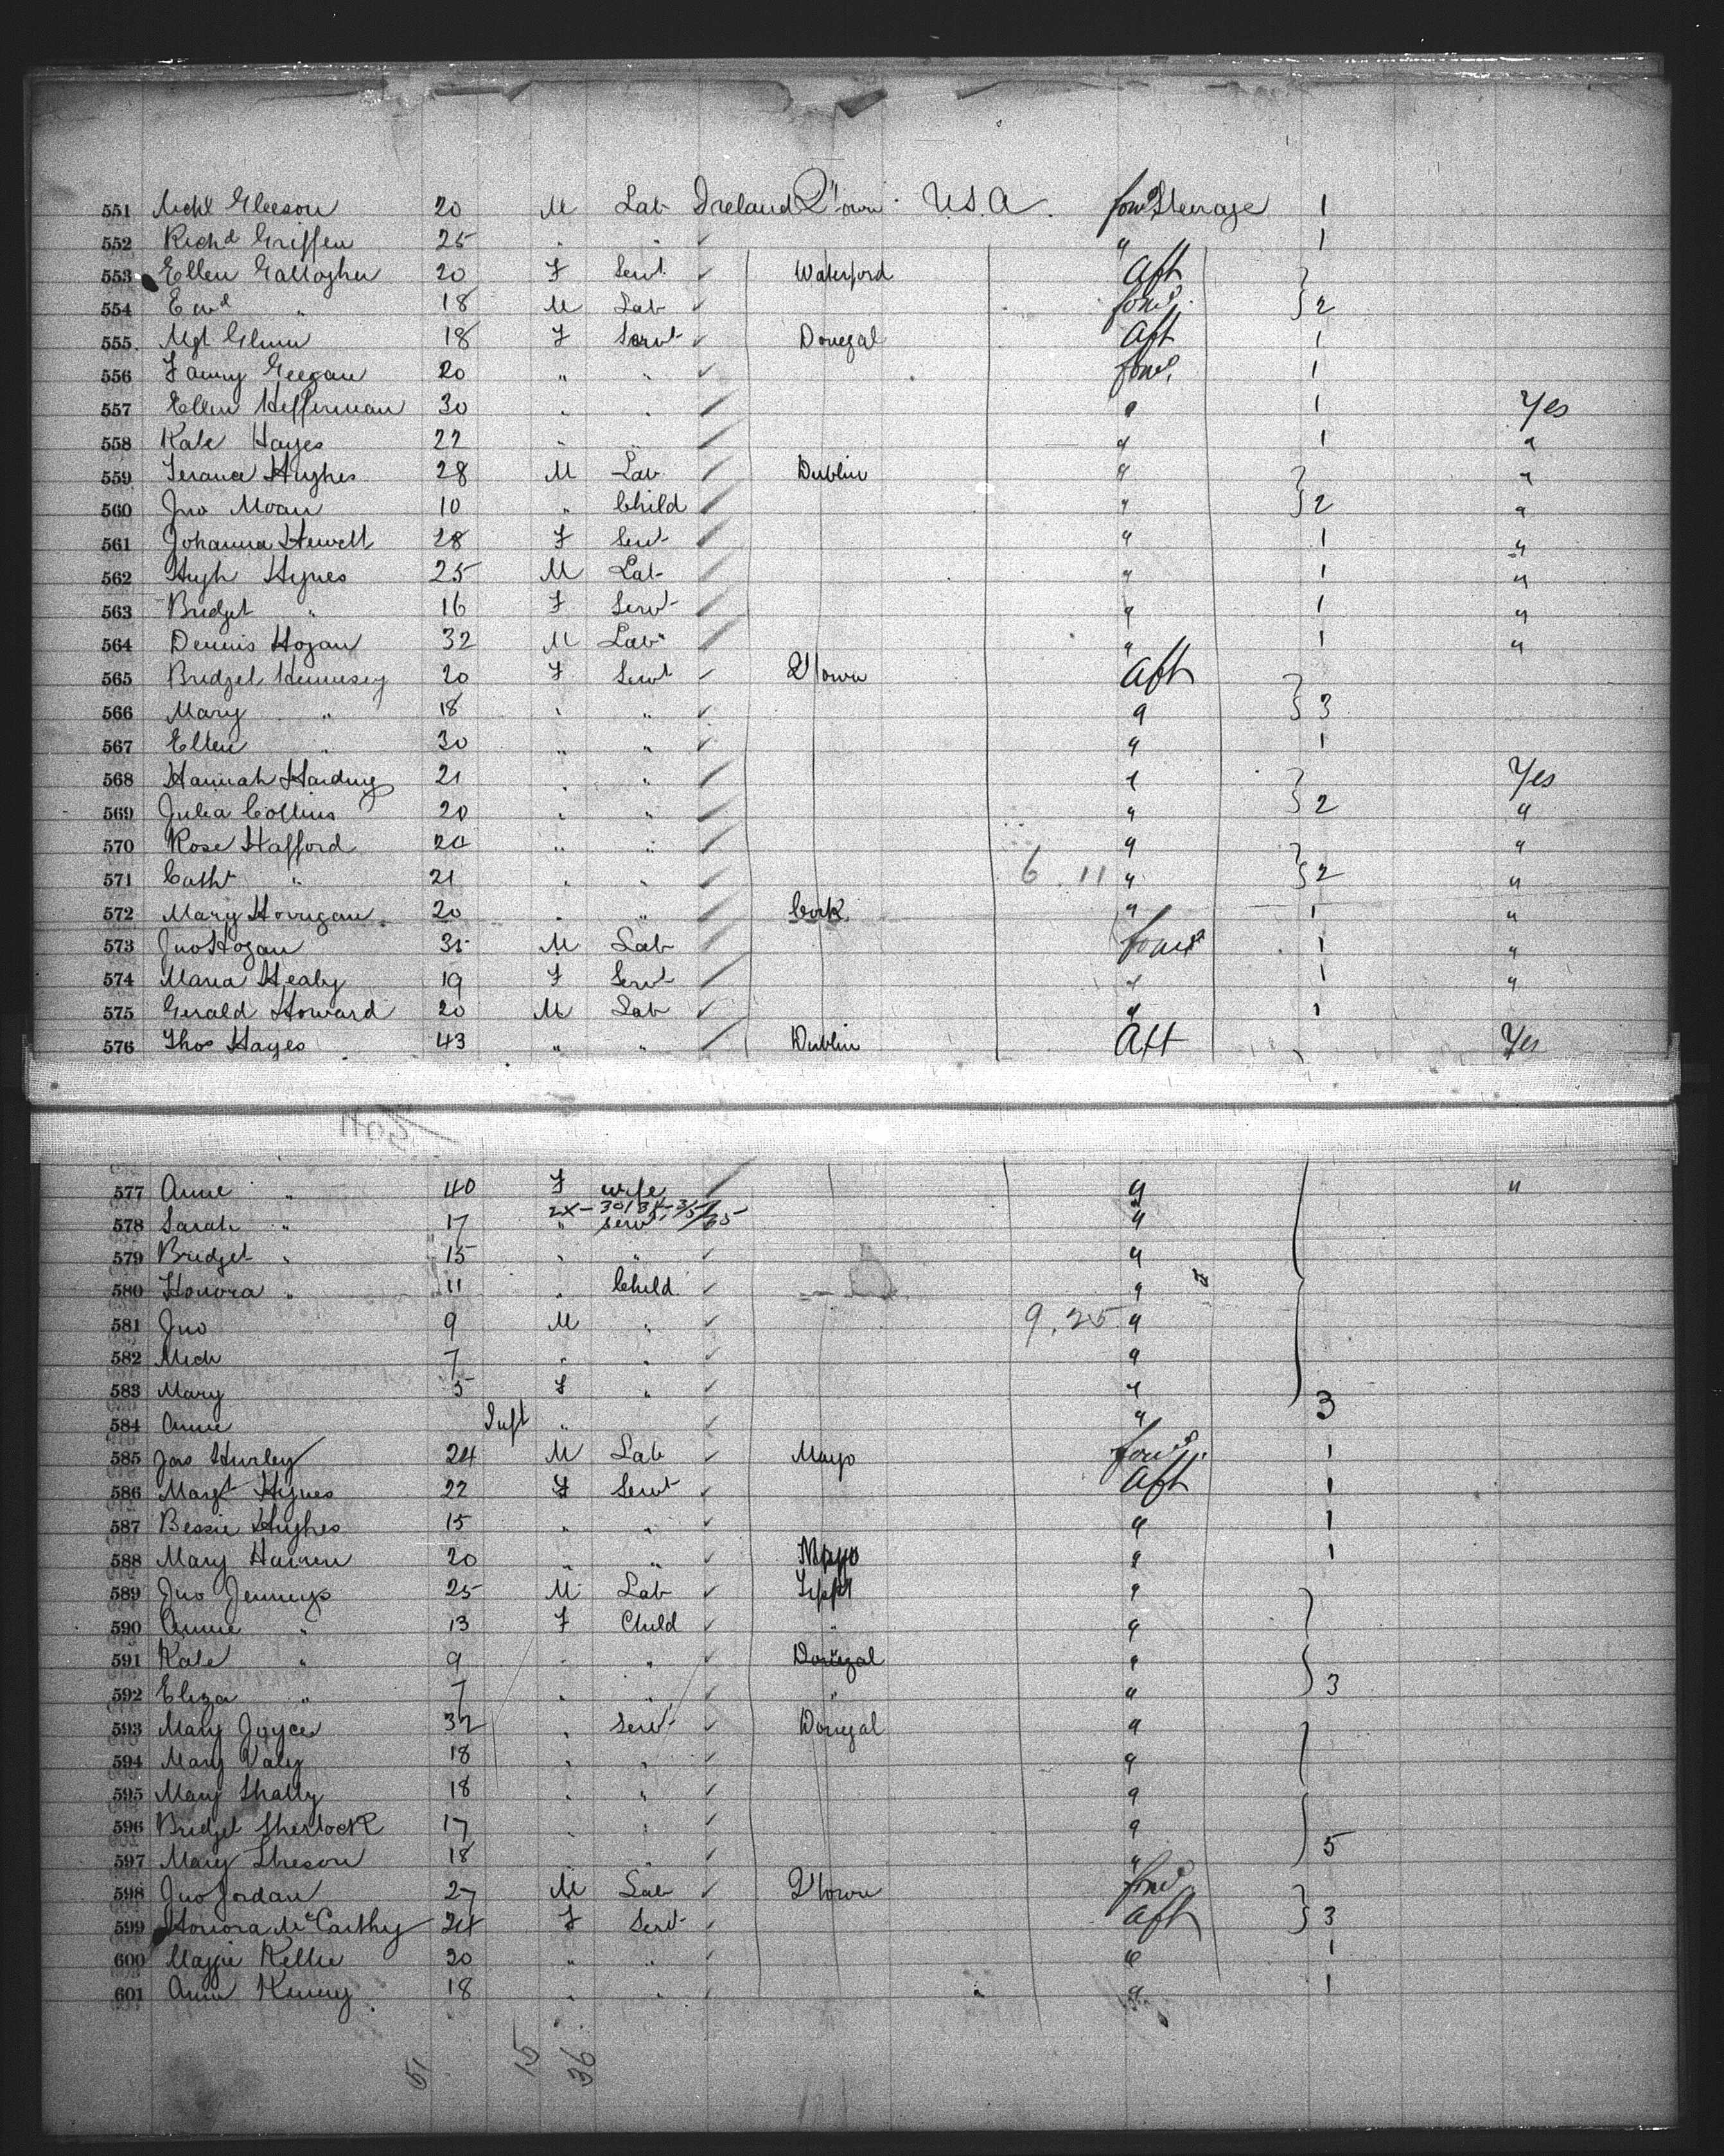 551 Michl Gleeson 20 M Lab Ireland Q'town U.S.A. for'd Steerage 1
552 Richd Griffen 25 " " " 1
553 Ellen Gallagher 20 F Servt Waterford Aft
554 Ewd " 18 M Lab for'd 2
555 Mgt Glynn 18 F Servt Donegal Aft 1
556 Fanny Geegan 20 " " for'd 1
557 Ellen Hefferman 30 " " " 1 Yes
558 Kate Hayes 22 " " " 1 "
559 Hughes 28 M Lab Dublin " "
560 Jno Moan 10 " Child " 2 "
561 Johanna Hewett 28 F Servt " 1 "
562 Hugh Hynes 25 M Lab " 1 "
563 Bridget " 16 F Servt " 1 "
564 Dennis Hogan 32 M Lab " 1 "
565 Bridget Hennesey 20 F Servt Q'town Aft
566 Mary " 18 " " " 3
567 Ellen " 30 " " " 1
568 Hannah Harding 21 " " " Yes
569 Julia Collins 20 " " " 2 "
570 Rose Hafford 24 " " " "
571 Cathe " 21 " " 6.11 " 2 "
572 Mary Horrigan 20 " " Cork " 1 "
573 Jno Hogan 35 M Lab for'd 1 "
574 Maria Healy 19 F Servt " 1 "
575 Gerald Howard 20 M Lab " 1
576 Thos Hayes 43 " " Dublin Aft Yes
577 Anne " 40 F wife " "
2X-30138-3/5/65
578 Sarah " 17 " servt "
579 Bridget " 15 " " "
580 Honora " 11 " Child "
581 Jno 9 M " 9.25 "
582 Mich 7 " " "
583 Mary 5 F " " 3
584 Anne Inft " "
585 Jas Hurley 24 M Lab Mayo for'd 1
586 Margt Hynes 22 F Servt Aft 1
587 Bessie Hughes 15 " " " 1
588 Mary 20 " " Mayo " 1
589 Jno Jennings 25 M Lab "
590 Annie " 13 F Child " "
591 Kate " 9 " " Donegal "
592 Eliza " 7 " " " " 3
593 Mary Joyce 32 " Servt Donegal "
594 Mary 18 " " "
595 Mary Shally 18 " " "
596 Bridget Sherlock 17 " " " 5
597 Mary 18 " "
598 Jno Jordan 27 M Lab Q'town for'd
599 Honora McCarthy 24 F Servt Aft 3
600 Maggie Kellie 20 " " " 1
601 Ann Kenny 18 " " " 1
51 15 36